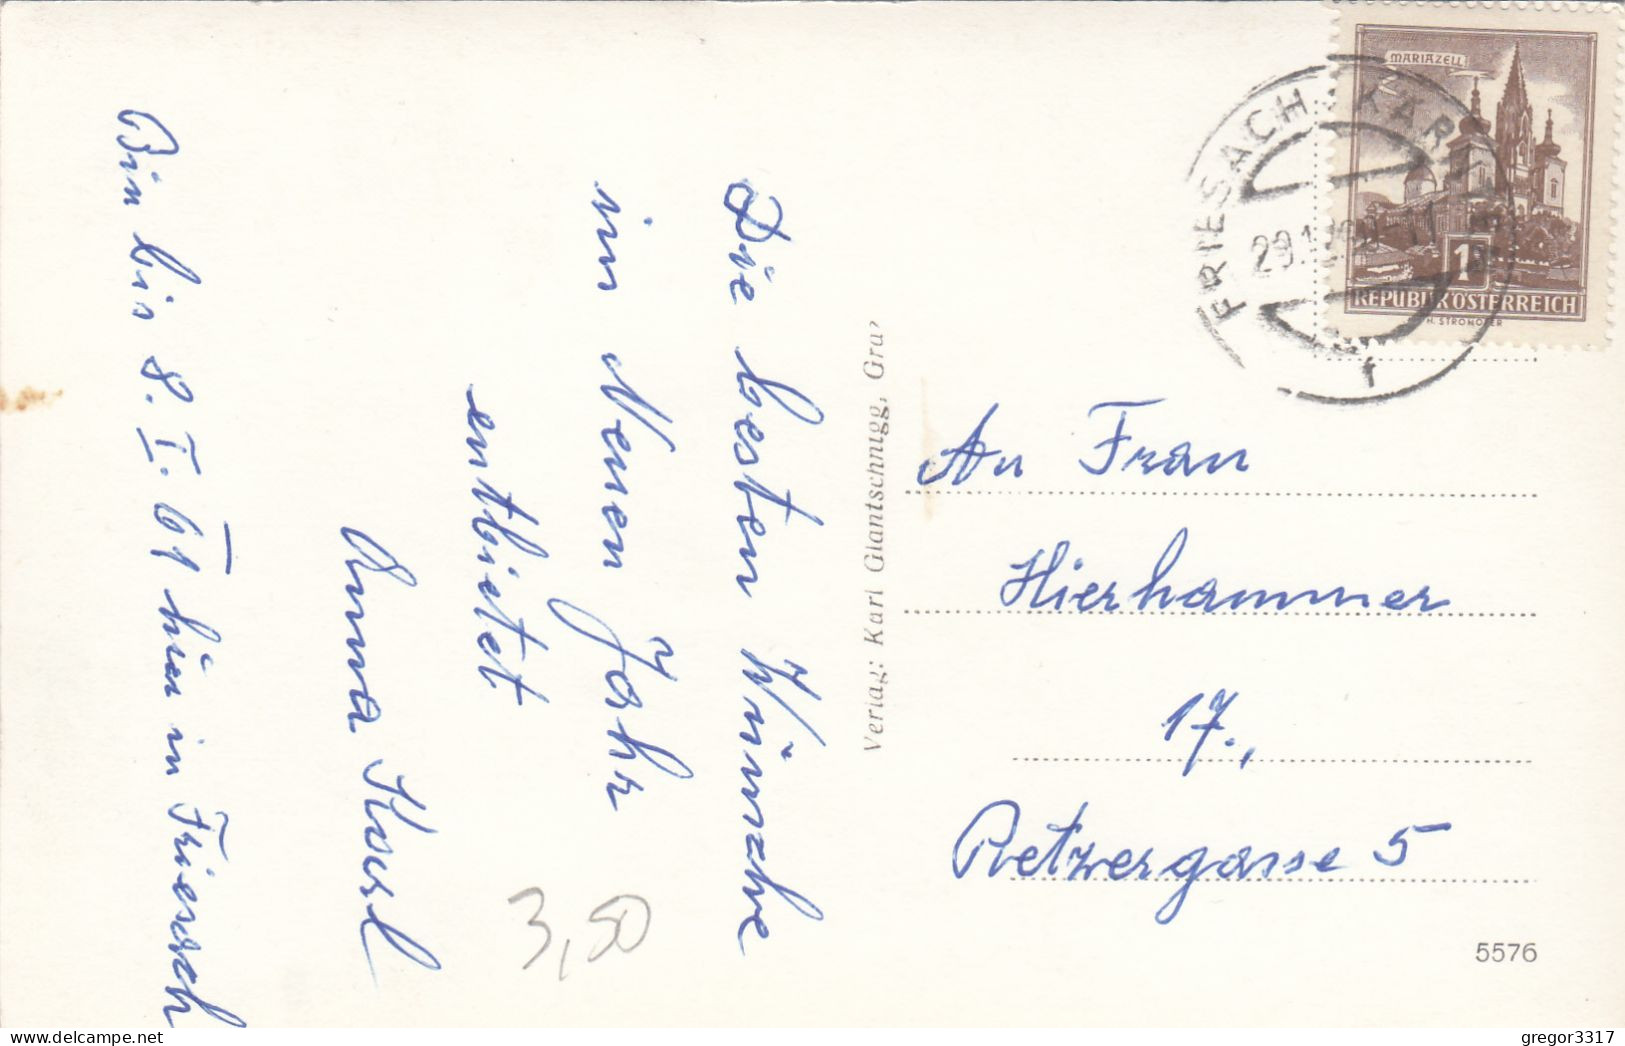 Die besten Wünsche
im Neuen Jahr
entbietet
Anna
Bin bis 8. I. 61 hier in Friesach
3,50
Verlag: Karl Glantschnigg, Graz
MARIAZELL
1S
REPUBLIK ÖSTERREICH
H. STROHOFER
FRIESACH, KÄRNTEN
f
An Frau
Hierhammer
17.,
Retzergasse 5
5576
gregor3317